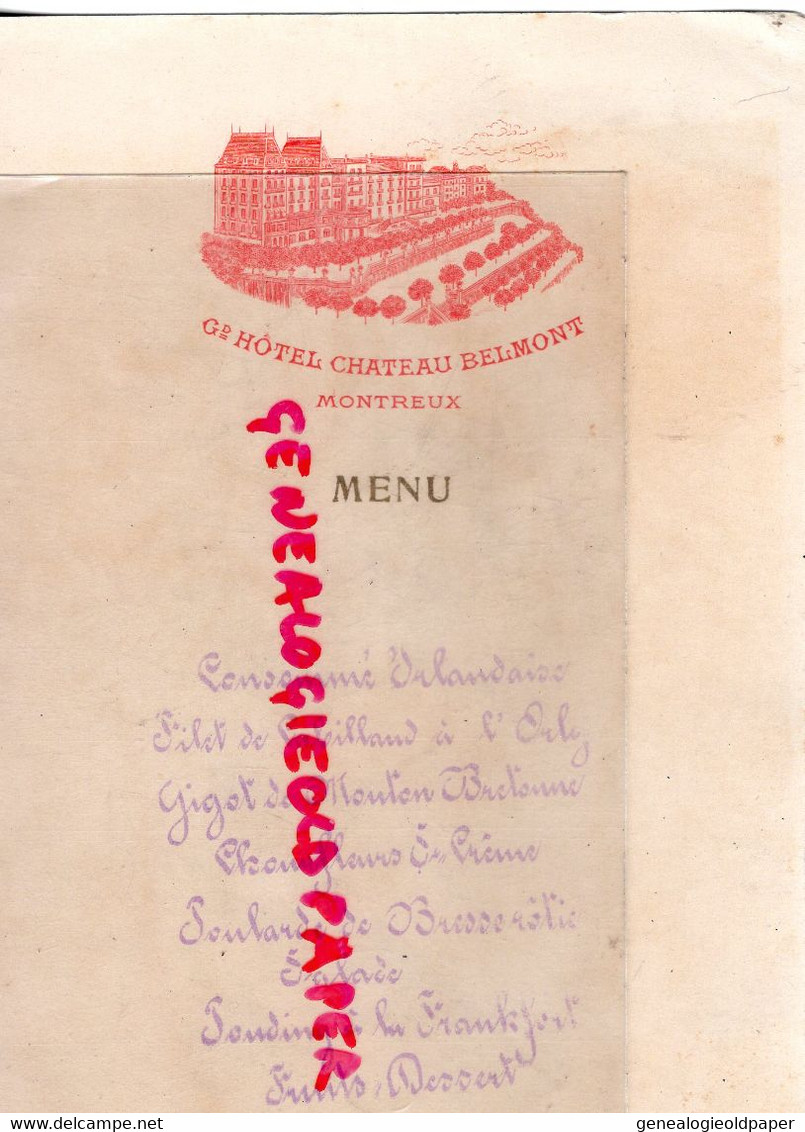 GD HÔTEL CHATEAU BELMONT
MONTREUX
MENU
GENEALOGIEOLDPAPER
Consommé Irlandaise
Filet de Cabillaud à l'Orly
Gigot de Mouton Bretonne
Choufleurs Sce Crème
Poularde de Bresse rôtie
Salade
Pouding à la Frankfort
Fruits, Dessert
www.delcampe.net
genealogieoldpaper